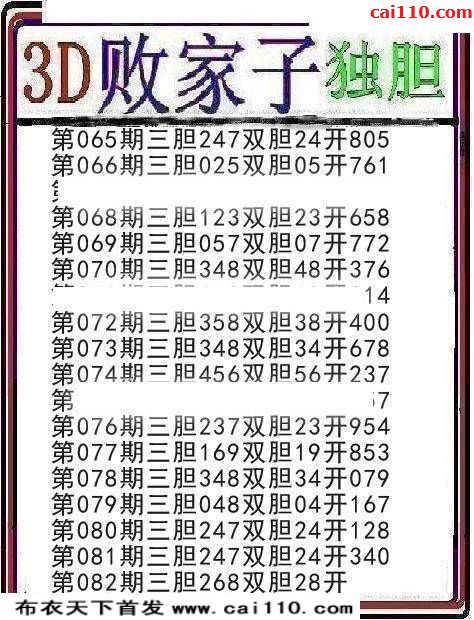 cai110.com
3D败家子独胆
第065期三胆247双胆24开805
第066期三胆025双胆05开761
第068期三胆123双胆23开658
第069期三胆057双胆07开772
第070期三胆348双胆48开376
14
第072期三胆358双胆38开400
第073期三胆348双胆34开678
第074期三胆456双胆56开237
第 7
第076期三胆237双胆23开954
第077期三胆169双胆19开853
第078期三胆348双胆34开079
第079期三胆048双胆04开167
第080期三胆247双胆24开128
第081期三胆247双胆24开340
第082期三胆268双胆28开
布衣天下首发 www.cai110.com